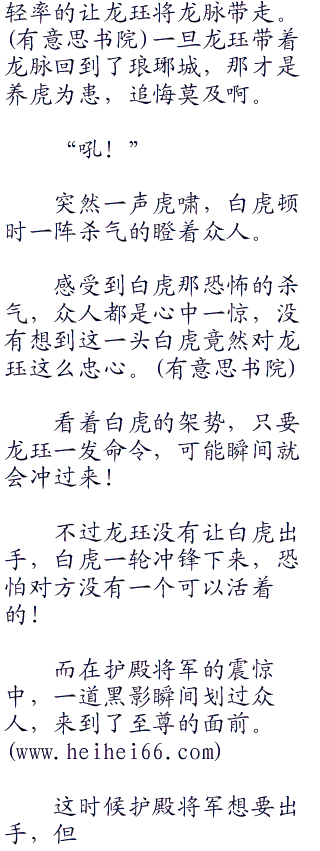 轻率的让龙珏将龙脉带走。
(有意思书院)一旦龙珏带着
龙脉回到了琅琊城，那才是
养虎为患，追悔莫及啊。
“吼！”
突然一声虎啸，白虎顿
时一阵杀气的瞪着众人。
感受到白虎那恐怖的杀
气，众人都是心中一惊，没
有想到这一头白虎竟然对龙
珏这么忠心。(有意思书院)
看着白虎的架势，只要
龙珏一发命令，可能瞬间就
会冲过来！
不过龙珏没有让白虎出
手，白虎一轮冲锋下来，恐
怕对方没有一个可以活着
的！
而在护殿将军的震惊
中，一道黑影瞬间划过众
人，来到了至尊的面前。
(www.heihei66.com)
这时候护殿将军想要出
手，但